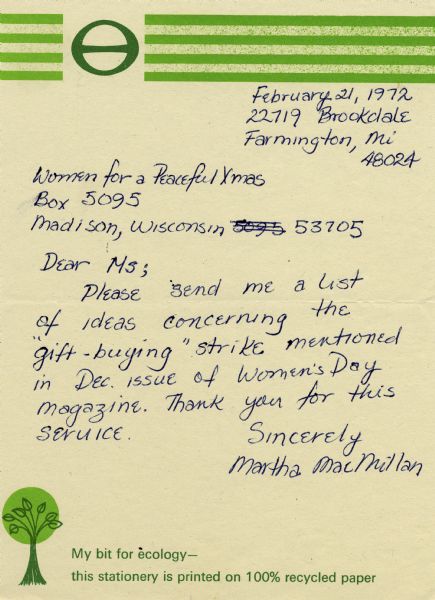 February 21, 1972
22719 Brookdale
Farmington, Mi
48024
Women for a Peaceful Xmas
Box 5095
Madison, Wisconsin 5095 53705
Dear Ms;
Please send me a list
of ideas concerning the
"gift-buying" strike mentioned
in Dec. issue of Women's Day
magazine. Thank you for this
service.
Sincerely
Martha MacMillan
My bit for ecology—
this stationery is printed on 100% recycled paper